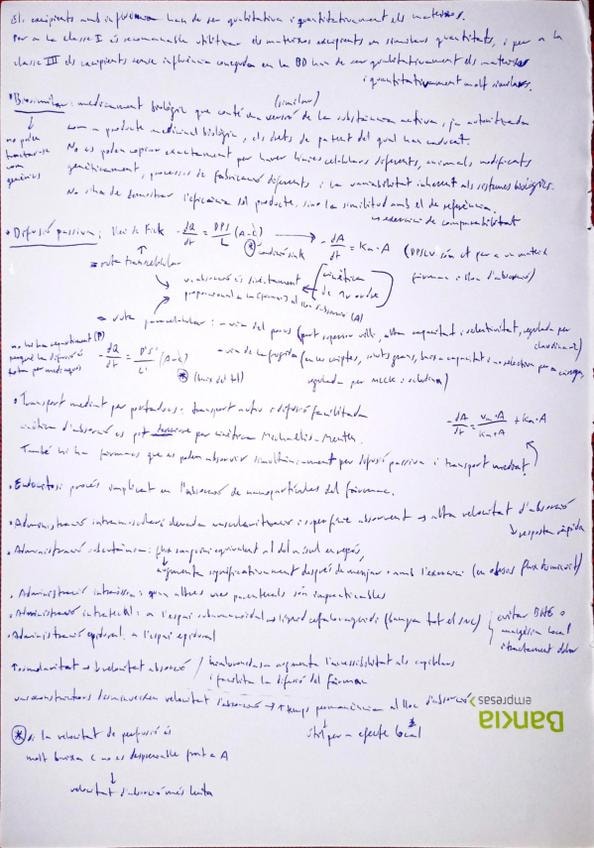 Els excipients amb influència han de ser qualitativa i quantitativament els mateixos.
Per a la classe I és recomanable utilitzar els mateixos excipients en similars quantitats, i per a la
classe III els excipients sense influència coneguda en la BD han de ser qualitativament els mateixos
i quantitativament molt similars.
(similar)
• Biosimilar: medicament biològic que conté una versió de la substància activa, ja autoritzada
com a producte medicinal biològic, els drets de patent del qual han caducat.
no poden
tractar-se
com
genèrics
No es poden copiar exactament per haver línies cel·lulars diferents, animals modificats
genèticament, processos de fabricació diferents i la variabilitat inherent als sistemes biològics.
No s'ha de demostrar l'eficàcia del producte, sino la similitud amb el de referència.
→ exercici de comparabilitat
• Difusió passiva: Llei de Fick - dQ/dt = DPS/L (A-C) → - dA/dt = Ka·A (DPSLV són ct per a un mateix
* condició sink
fàrmac i lloc d'absorció)
= ruta transcel·lular
v. absorció és directament
proporcional a la al lloc d'absorció (A)
cinètica
de 1r ordre
= ruta paracel·lular: - via del porus (part superior villi, alta capacitat i selectivitat, regulada per
claudina-2)
no hi ha repartiment (P)
perquè la difusió és
- dQ/dt = D'S'/L' (A-C)
- via de la fugida (en les criptes, soluts grans, baixa capacitat i no selectiva per a càrrega,
regulada per MLCK i ocludina)
*
• Transport mediat per portadors: transport actiu i difusió facilitada
cinètica d'absorció es pot per cinètica Michaelis-Menten
- dA/dt = Vm·A/Km+A + Ka·A
També hi ha fàrmacs que es poden absorvir simultàniament per difusió passiva i transport mediat
• Endocitosi: procés implicat en l'absorció de nanopartícules del fàrmac.
• Administració intramuscular: elevada vascularització i superfície absorvent → alta velocitat d'absorció
→ resposta ràpida
• Administració subcutània: flux sanguini equivalent al del múscul en repòs,
augmenta significativament després de menjar o amb l'exercici (en obesos flux disminuït)
• Administració intraòssia: quan altres vies parenterals són impracticables
• Administració intratecal: a l'espai subaracnoidal → líquid cefaloraquidi (banya tot el SNC)
• Administració epidural: a l'espai epidural
evitar BHE o
analgèsia local
i tractament dolor
↑ osmolaritat → ↓ velocitat absorció / hialuronidasa augmenta l'accessibilitat als capil·lars
i facilita la difusió del fàrmac
vasoconstrictors disminueixen velocitat d'absorció → ↑ temps permanència al lloc d'absorció
útil per a efecte local
Bankia
empresas
* si la velocitat de perfusió és
molt baixa C no és despreciable front a A
↓
velocitat d'absorció més lenta